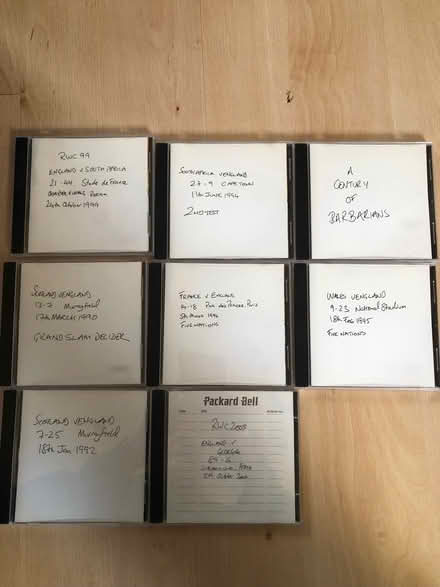 RWC 99
ENGLAND v SOUTH AFRICA
21-44 Stade de France
QUARTER FINALS
24th October 1999
SOUTH AFRICA v ENGLAND
27-9 CAPETOWN
11th JUNE 1994
2ND TEST
A
CENTURY
OF
BARBARIANS
SCOTLAND v ENGLAND
13-7 Murrayfield
17th MARCH 1990
GRAND SLAM DECIDER
FRANCE v ENGLAND
14-18 Parc des Princes, Paris
5th March 1994
FIVE NATIONS
WALES v ENGLAND
9-23 National Stadium
18th Feb 1995
FIVE NATIONS
SCOTLAND v ENGLAND
7-25 Murrayfield
18th Jan 1992
Packard Bell
RWC 2003
ENGLAND v
GEORGIA
84-6